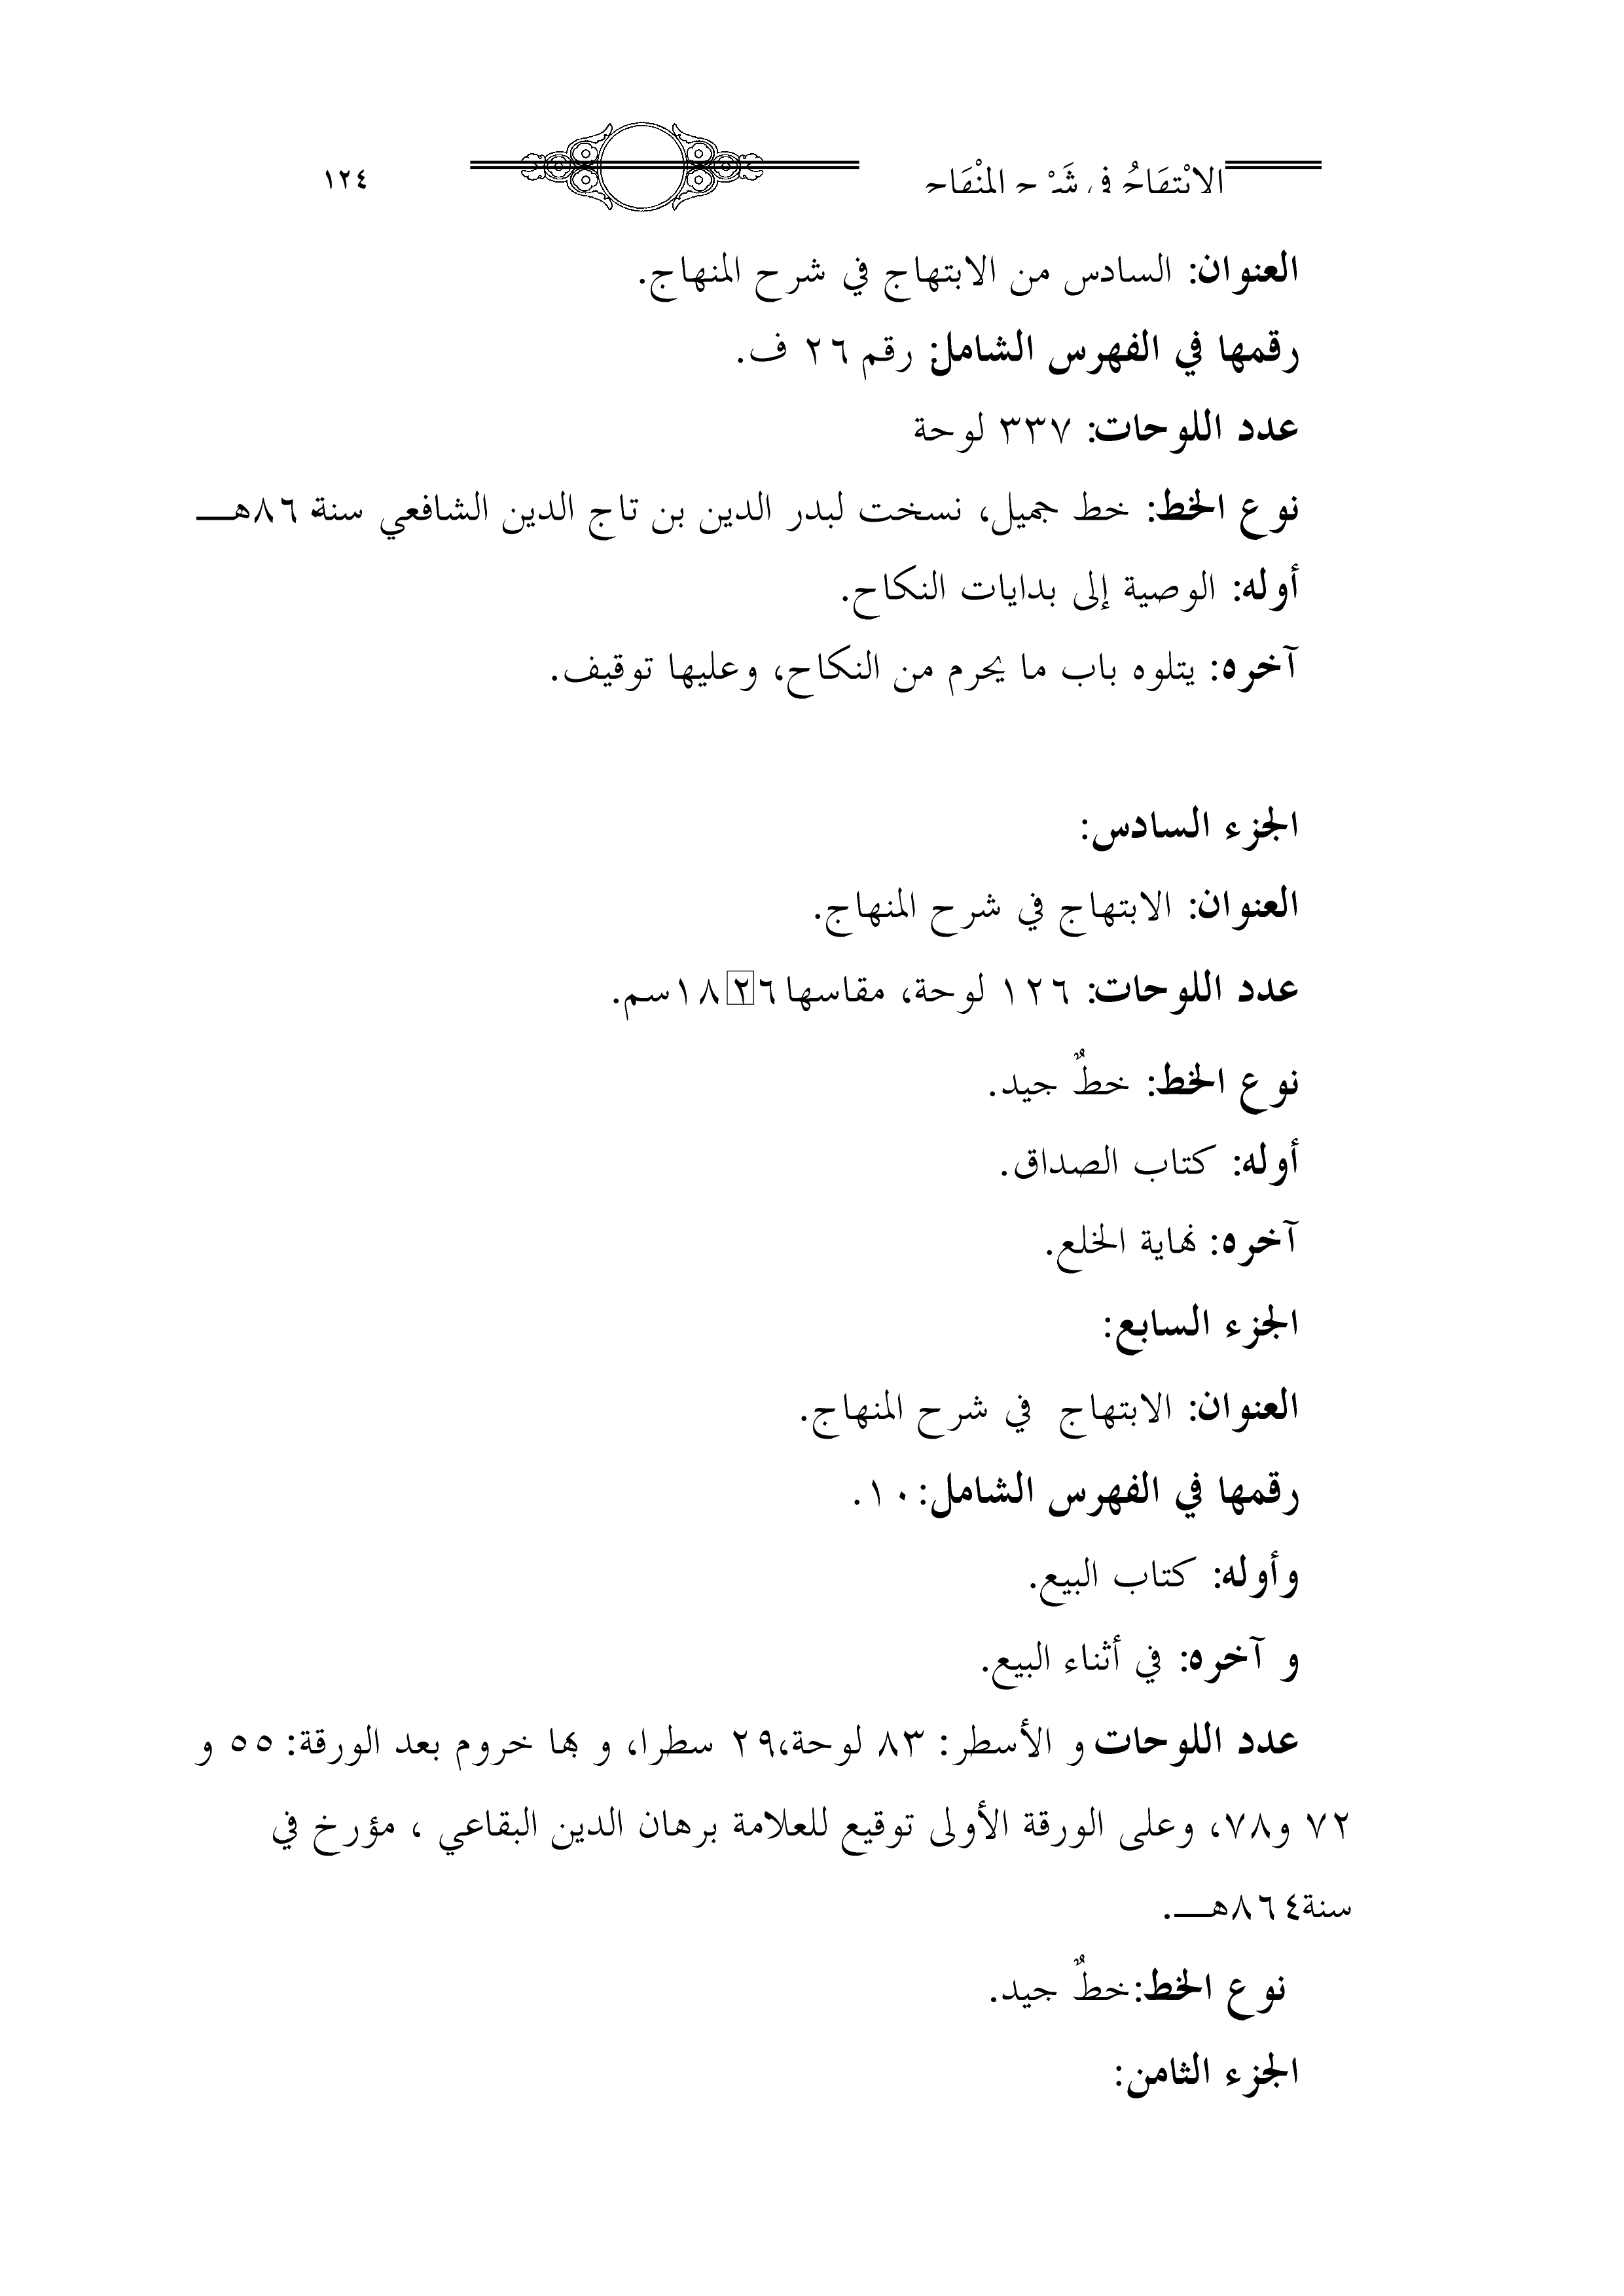 الابْتِهَاجُ في شَرْحِ المِنْهَاجِ ١٢٤
العنوان: السادس من الابتهاج في شرح المنهاج.
رقمها في الفهرس الشامل: رقم ٢٦ ف.
عدد اللوحات: ٣٣٧ لوحة
نوع الخط: خط جميل، نسخت لبدر الدين بن تاج الدين الشافعي سنة ٨٦هـ
أوله: الوصية إلى بدايات النكاح.
آخره: يتلوه باب ما يحرم من النكاح، وعليها توقيف.
الجزء السادس:
العنوان: الابتهاج في شرح المنهاج.
عدد اللوحات: ١٢٦ لوحة، مقاسها ١٨٢٦سم.
نوع الخط: خطٌ جيد.
أوله: كتاب الصداق.
آخره: نهاية الخلع.
الجزء السابع:
العنوان: الابتهاج في شرح المنهاج.
رقمها في الفهرس الشامل: ١٠.
وأوله: كتاب البيع.
و آخره: في أثناء البيع.
عدد اللوحات و الأسطر: ٨٣ لوحة،٢٩ سطرا، و بها خروم بعد الورقة: ٥٥ و
٧٢ و٧٨، وعلى الورقة الأولى توقيع للعلامة برهان الدين البقاعي ، مؤرخ في
سنة٨٦٤هـ.
نوع الخط:خطٌ جيد.
الجزء الثامن: